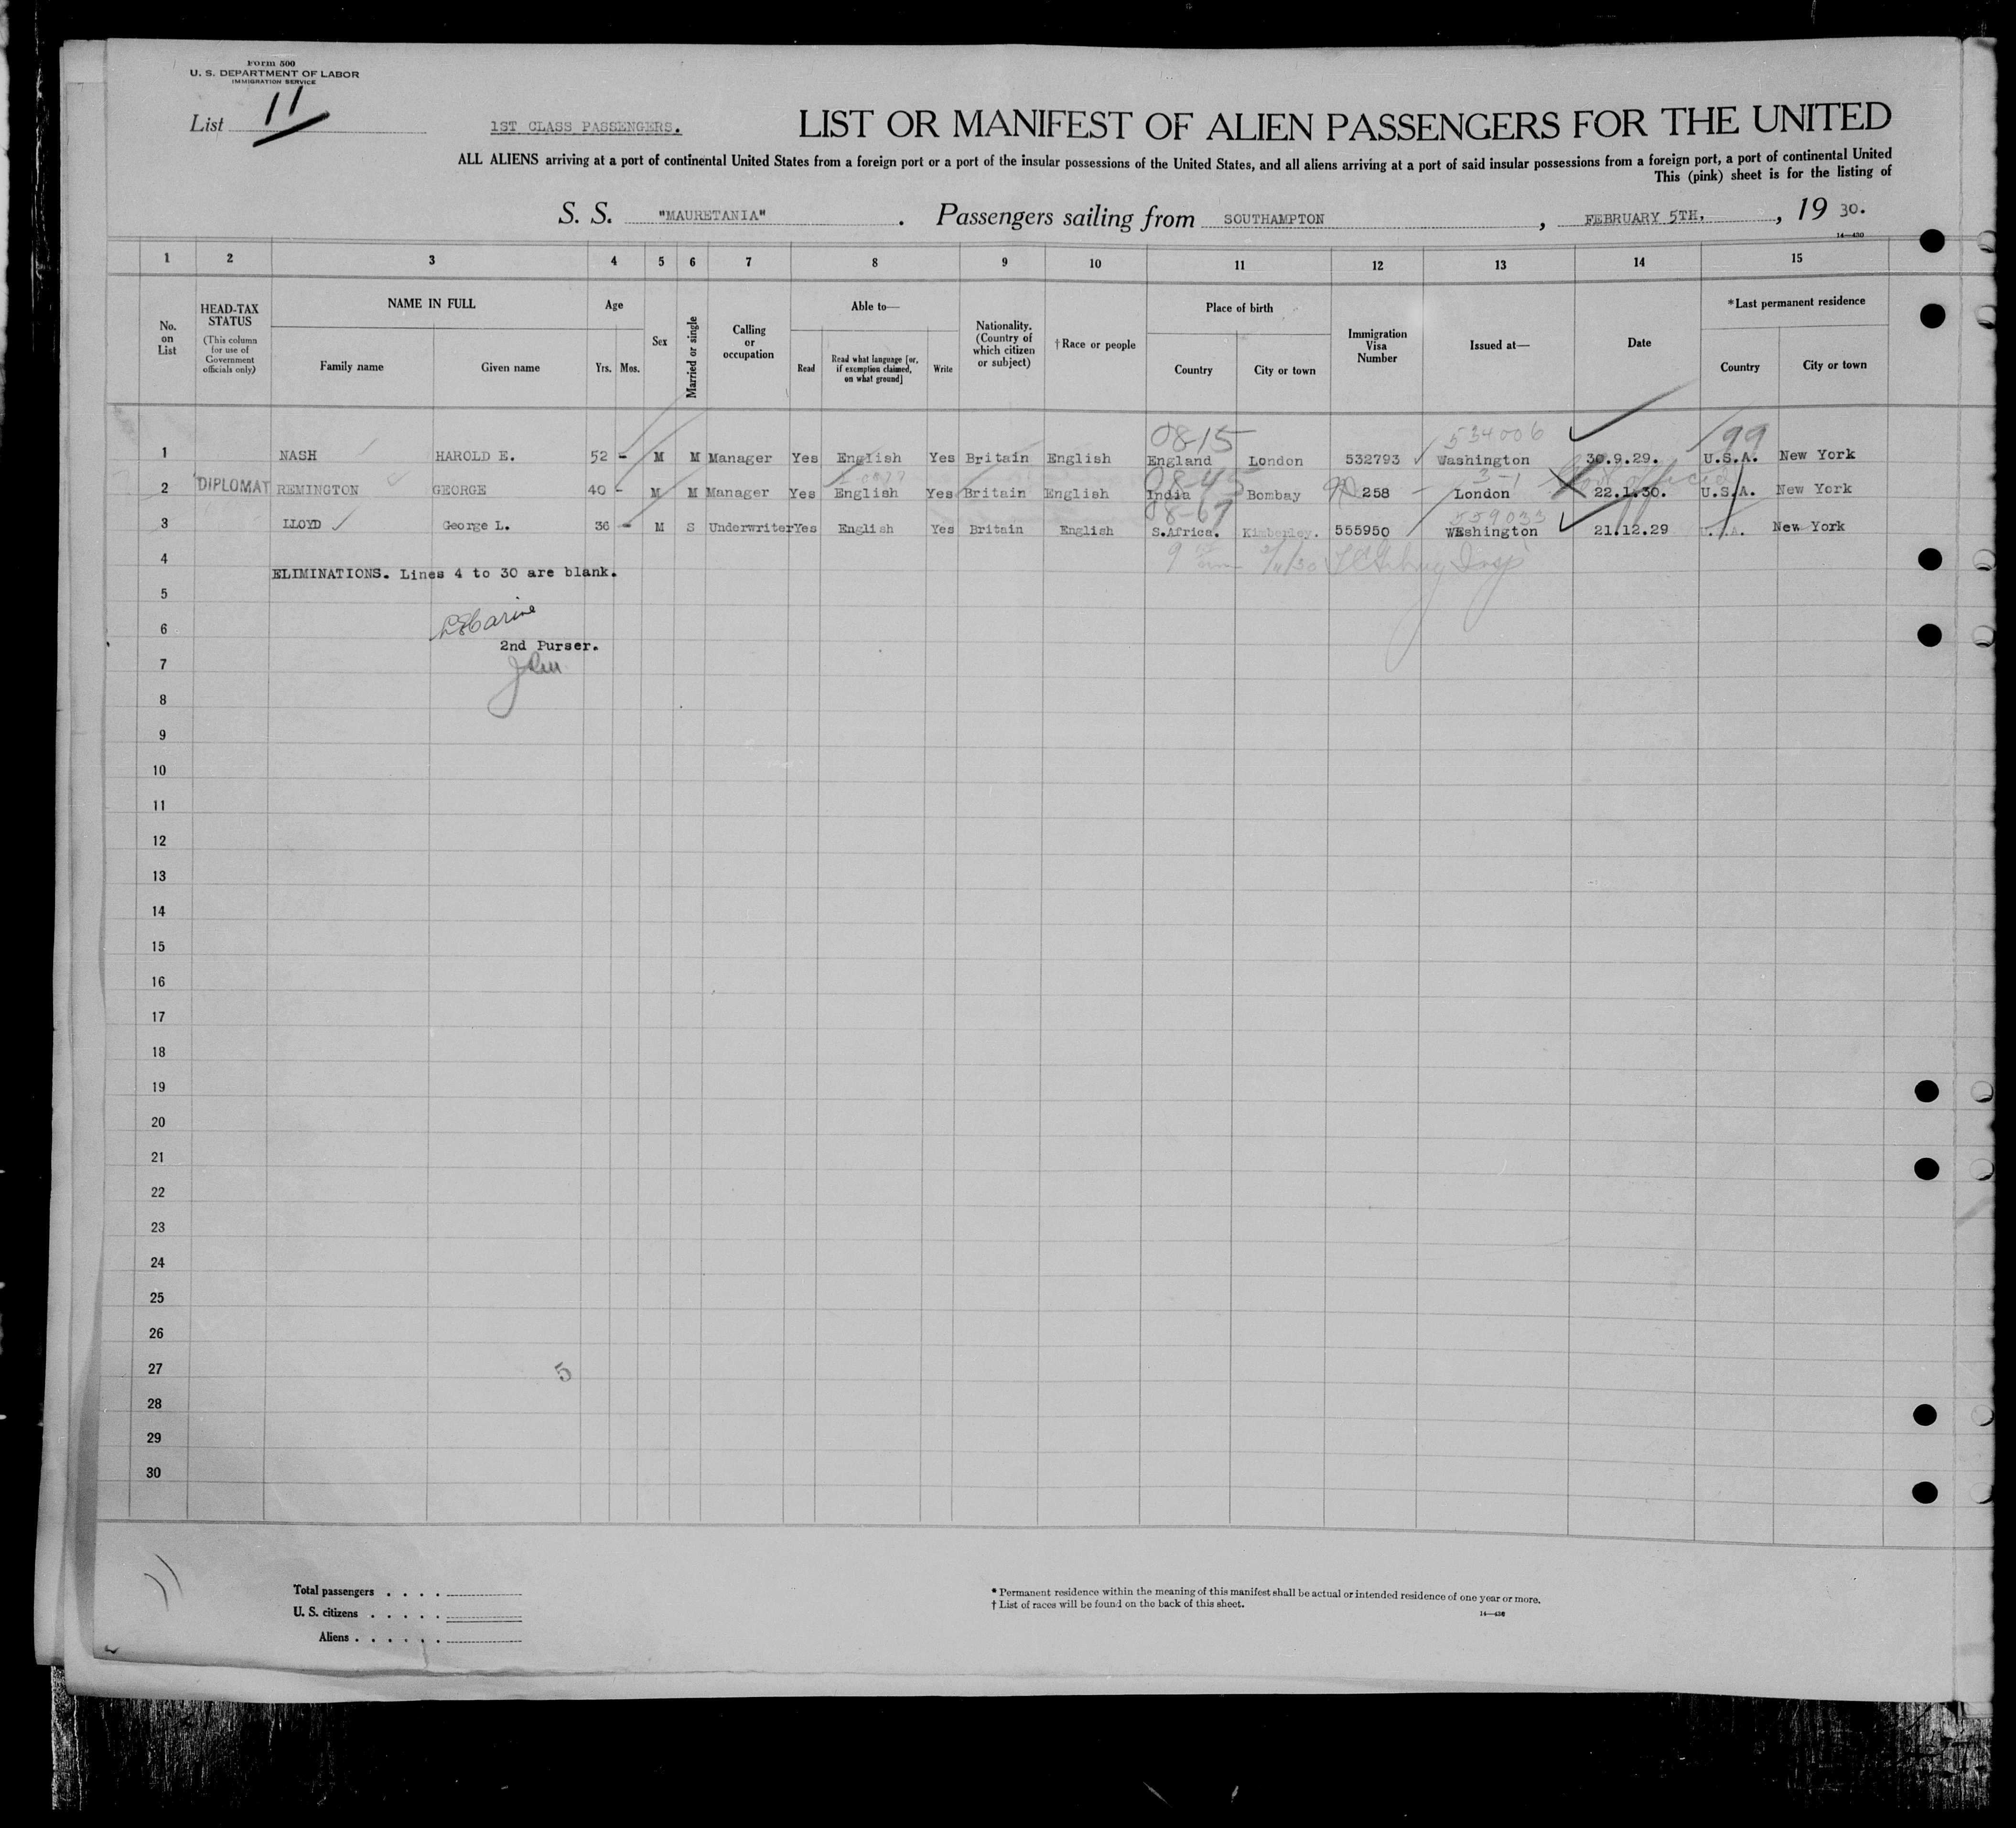 Form 500
U. S. DEPARTMENT OF LABOR
IMMIGRATION SERVICE
List 11
1ST CLASS PASSENGERS.
LIST OR MANIFEST OF ALIEN PASSENGERS FOR THE UNITED
ALL ALIENS arriving at a port of continental United States from a foreign port or a port of the insular possessions of the United States, and all aliens arriving at a port of said insular possessions from a foreign port, a port of continental United
This (pink) sheet is for the listing of
S. S. "MAURETANIA". Passengers sailing from SOUTHAMPTON, FEBRUARY 5TH., 19 30.
14—430
1 2 3 4 5 6 7 8 9 10 11 12 13 14 15
No. on List
HEAD-TAX STATUS
(This column for use of Government officials only)
NAME IN FULL
Family name
Given name
Age
Yrs.
Mos.
Sex
Married or single
Calling or occupation
Able to—
Read
Read what language [or, if exemption claimed, on what ground]
Write
Nationality. (Country of which citizen or subject)
†Race or people
Place of birth
Country
City or town
Immigration Visa Number
Issued at—
Date
*Last permanent residence
Country
City or town
0815 534006 99
1 NASH HAROLD E. 52 - M M Manager Yes English Yes Britain English England London 532793 Washington 30.9.29. U.S.A. New York
08-45 3-1 Govt official
2 DIPLOMAT REMINGTON GEORGE 40 - M M Manager Yes English Yes Britain English India Bombay 258 London 22.1.30. U.S.A. New York
08-67 559033
3 LLOYD George L. 36 - M S Underwriter Yes English Yes Britain English S.Africa. Kimberley. 555950 WEshington 21.12.29 U.S.A. New York
4
ELIMINATIONS. Lines 4 to 30 are blank.
5
6
2nd Purser.
7
8
9
10
11
12
13
14
15
16
17
18
19
20
21
22
23
24
25
26
27
5
28
29
30
Total passengers . . . .
U. S. citizens . . . . .
Aliens . . . . . .
* Permanent residence within the meaning of this manifest shall be actual or intended residence of one year or more.
† List of races will be found on the back of this sheet.
14—430